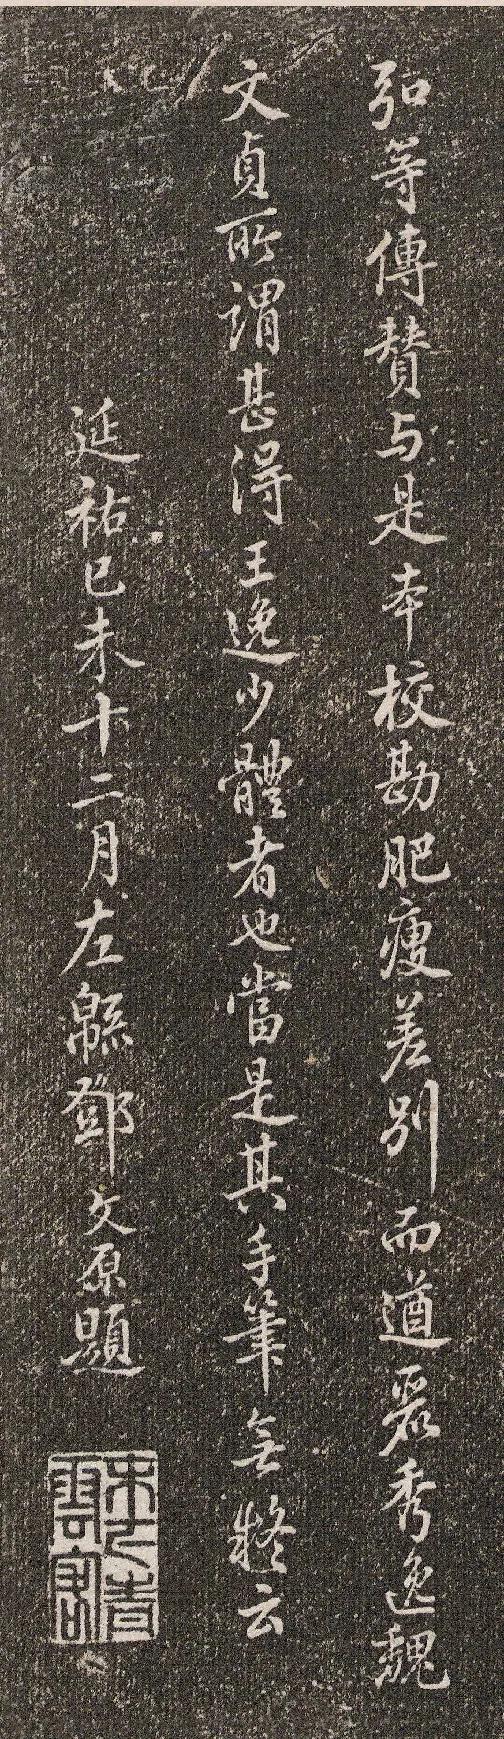 弘等傳贊与是本校勘肥瘦差別而遒麗秀逸魏
文貞所謂甚得王逸少體者也當是其手筆無疑云
延祐己未十二月左緜鄧文原題